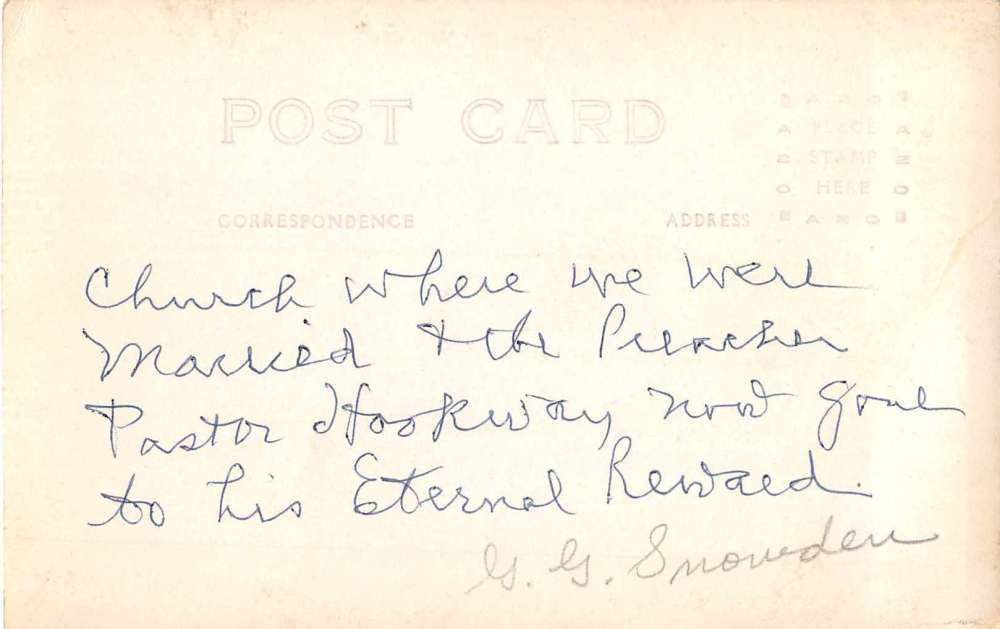 POST CARD
CORRESPONDENCE
ADDRESS
PLACE
STAMP
HERE
Church where we were
Married & the Preacher
Pastor Hookway now gone
to his Eternal Reward.
G. G. Snowden